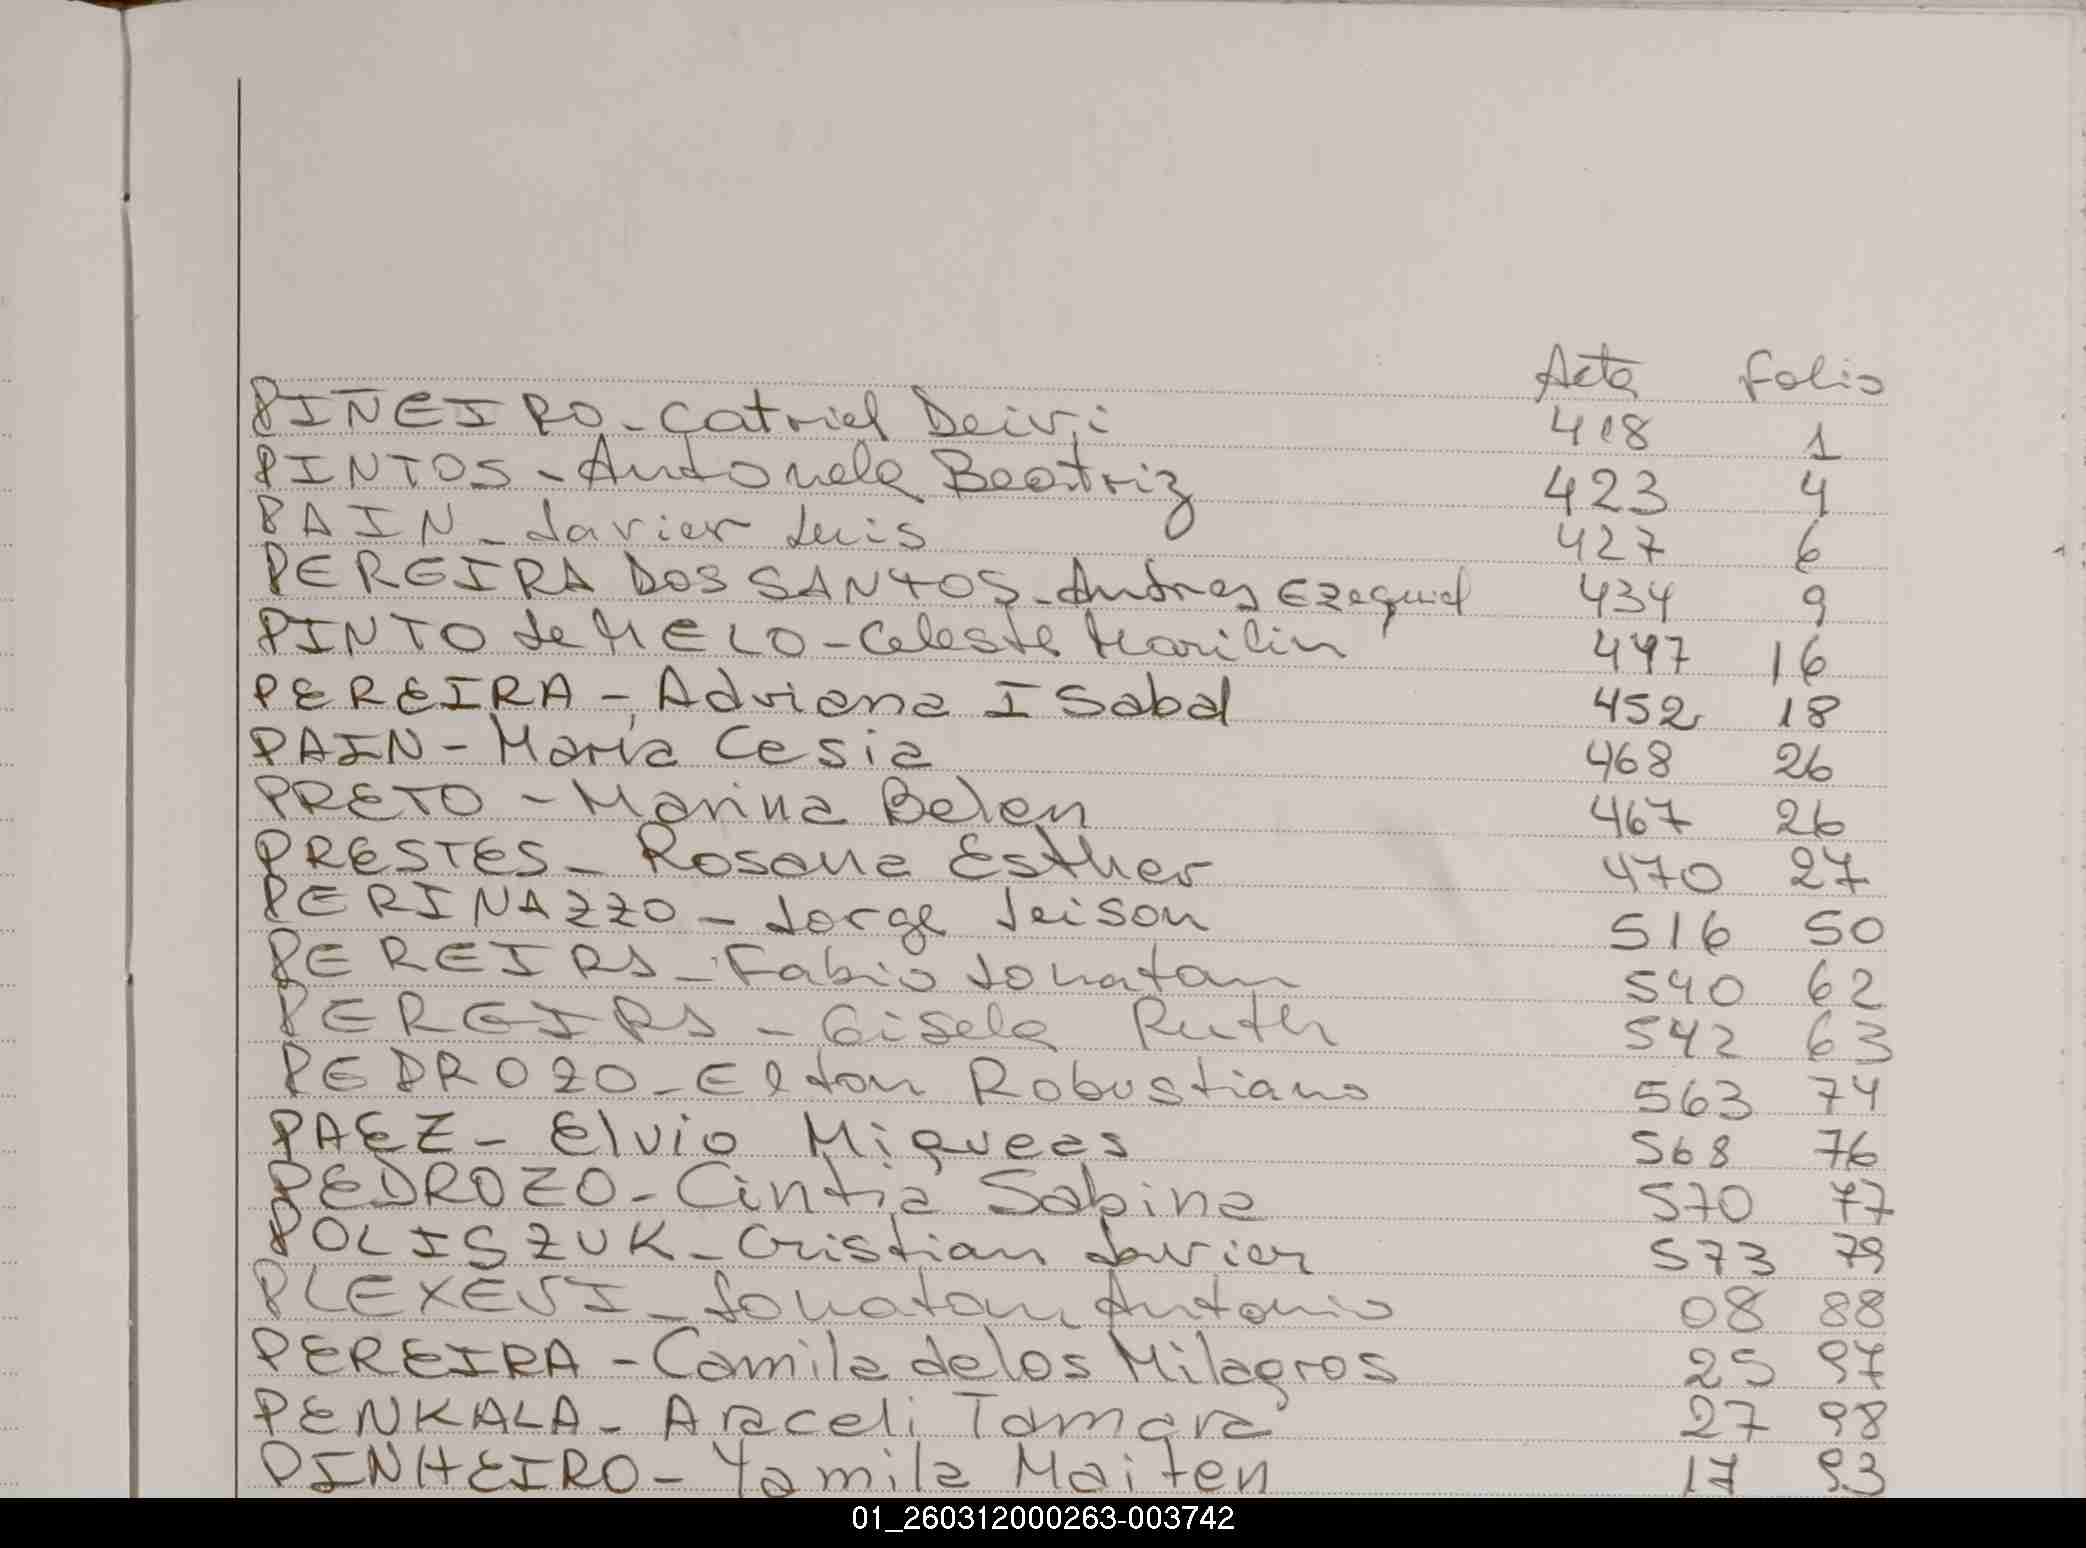 Acta Folio
PIÑEIRO - Catriel Deivi 418 1
PINTOS - Antonela Beatriz 423 4
PAIN - Javier Luis 427 6
PEREIRA DOS SANTOS - Andres Ezequiel 434 9
PINTO de MELO - Celeste Marilin 447 16
PEREIRA - Adriana Isabel 452 18
PAIN - María Cesia 468 26
PRETO - Marina Belen 467 26
PRESTES - Rosana Esther 470 27
PERINAZZO - Jorge Jeison 516 50
PEREIRA - Fabio Jonatan 540 62
PEREIRA - Gisela Ruth 542 63
PEDROZO - Elton Robustiano 563 74
PAEZ - Elvio Miqueas 568 76
PEDROZO - Cintia Sabina 570 77
POLISZUK - Cristian Javier 573 79
Jonatan Antonio 08 88
PEREIRA - Camila de los Milagros 25 97
PENKALA - Araceli Tamara 27 98
PINHEIRO - Yamila Maiten 17 93
01_260312000263-003742